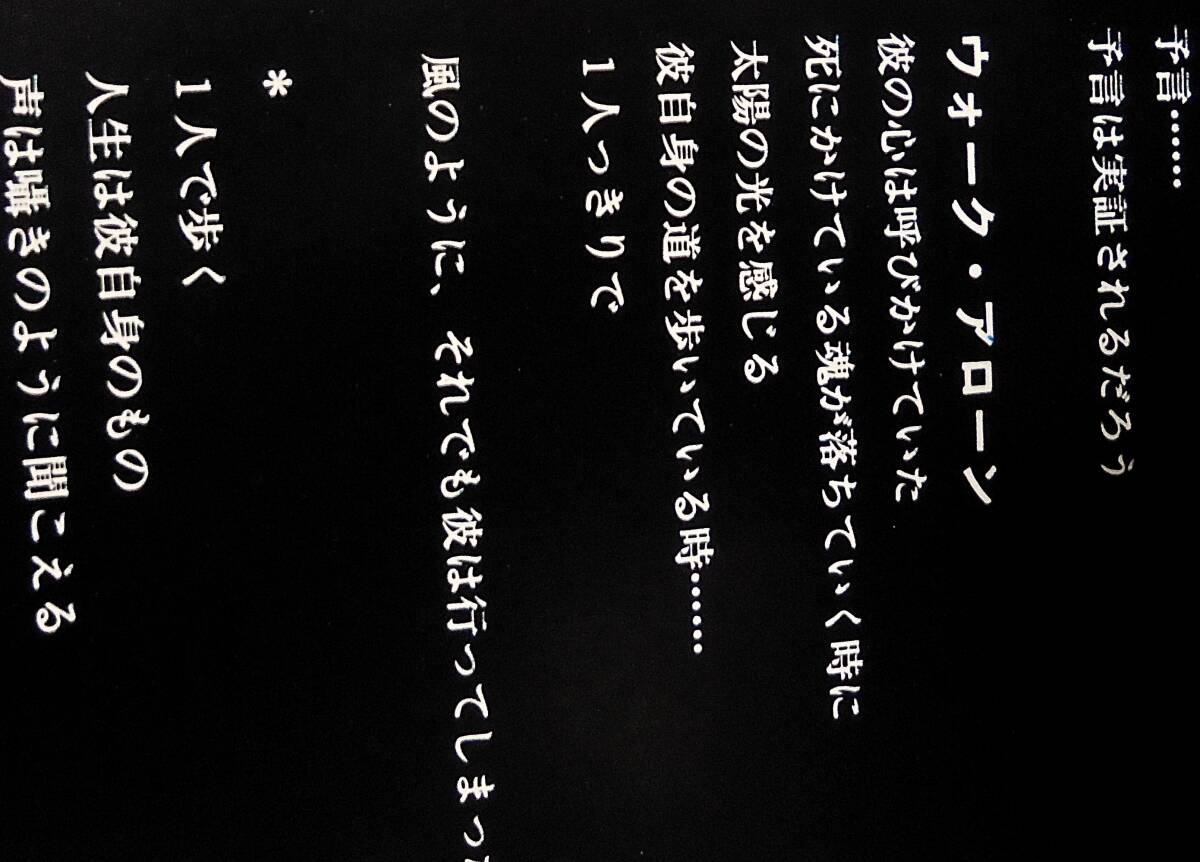 予言……
予言は実証されるだろう
ウォーク・アローン
彼の心は呼びかけていた
死にかけている魂が落ちていく時に
太陽の光を感じる
彼自身の道を歩いている時……
1人っきりで
風のように、それでも彼は行ってしまっ
*
1人で歩く
人生は彼自身のもの
声は囁きのように聞こえる